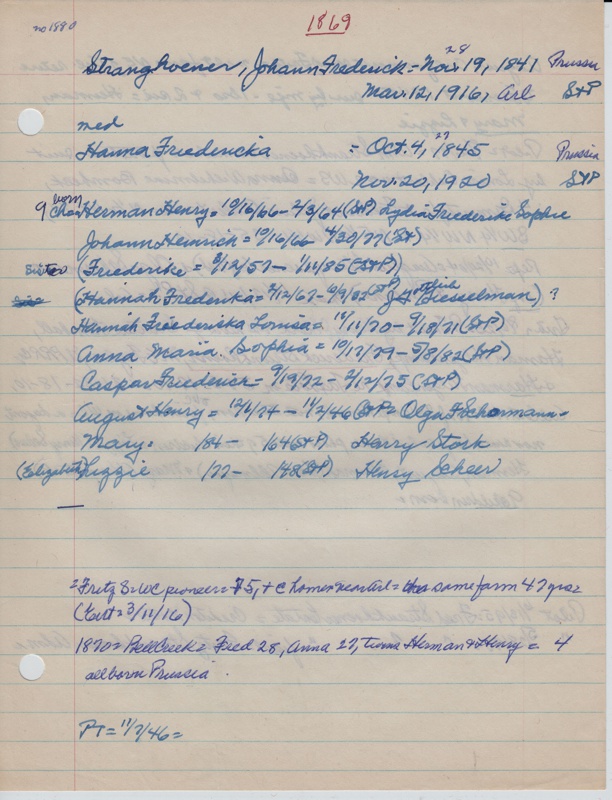 no 1880
1869
Stranghoener, Johann Frederick = Nov. 19, 1841 Prussia
28
Mar. 12, 1916, Arl S+P
med
Hanna Friedericka = Oct. 4, 1845 Prussia
27
Nov. 20, 1920 S+P
9 Chn = Herman Henry = 10/16/66 - 2/3/64 (S+P) Lydia Friederike Sophie
Johann Heinrich = 10/16/66 4/30/77 (S+)
Sister (Friederike = 8/12/57 - 1/11/85 (S+P)
(Hannah Frederika = 2/12/67 - 6/9/52 (S+P) Giesselman) ?
Hannah Friedericka Louisa = 10/11/70 - 9/18/71 (S+P)
Anna Maria Sophia = 10/12/79 - 5/8/82 (S+P)
Caspar Friederick = 9/19/72 - 2/12/75 (S+P)
August Henry = 12/1/74 - 11/2/46 (S+P = Olga F Schormann -
Mary = 184 - 164 S+P) Harry Stork
(Elizabeth) Lizzie 177 - 148 (S+P) Henry Scheer
= Fritz S = WC pioneer = 75, + C home near Arl = same farm 47 yrs =
(Cert = 3/11/16)
1870 = Bellcreek = Fred 28, Anna 27, twins Herman + Henry = 4
all born Prussia
PT = 11/7/46 =